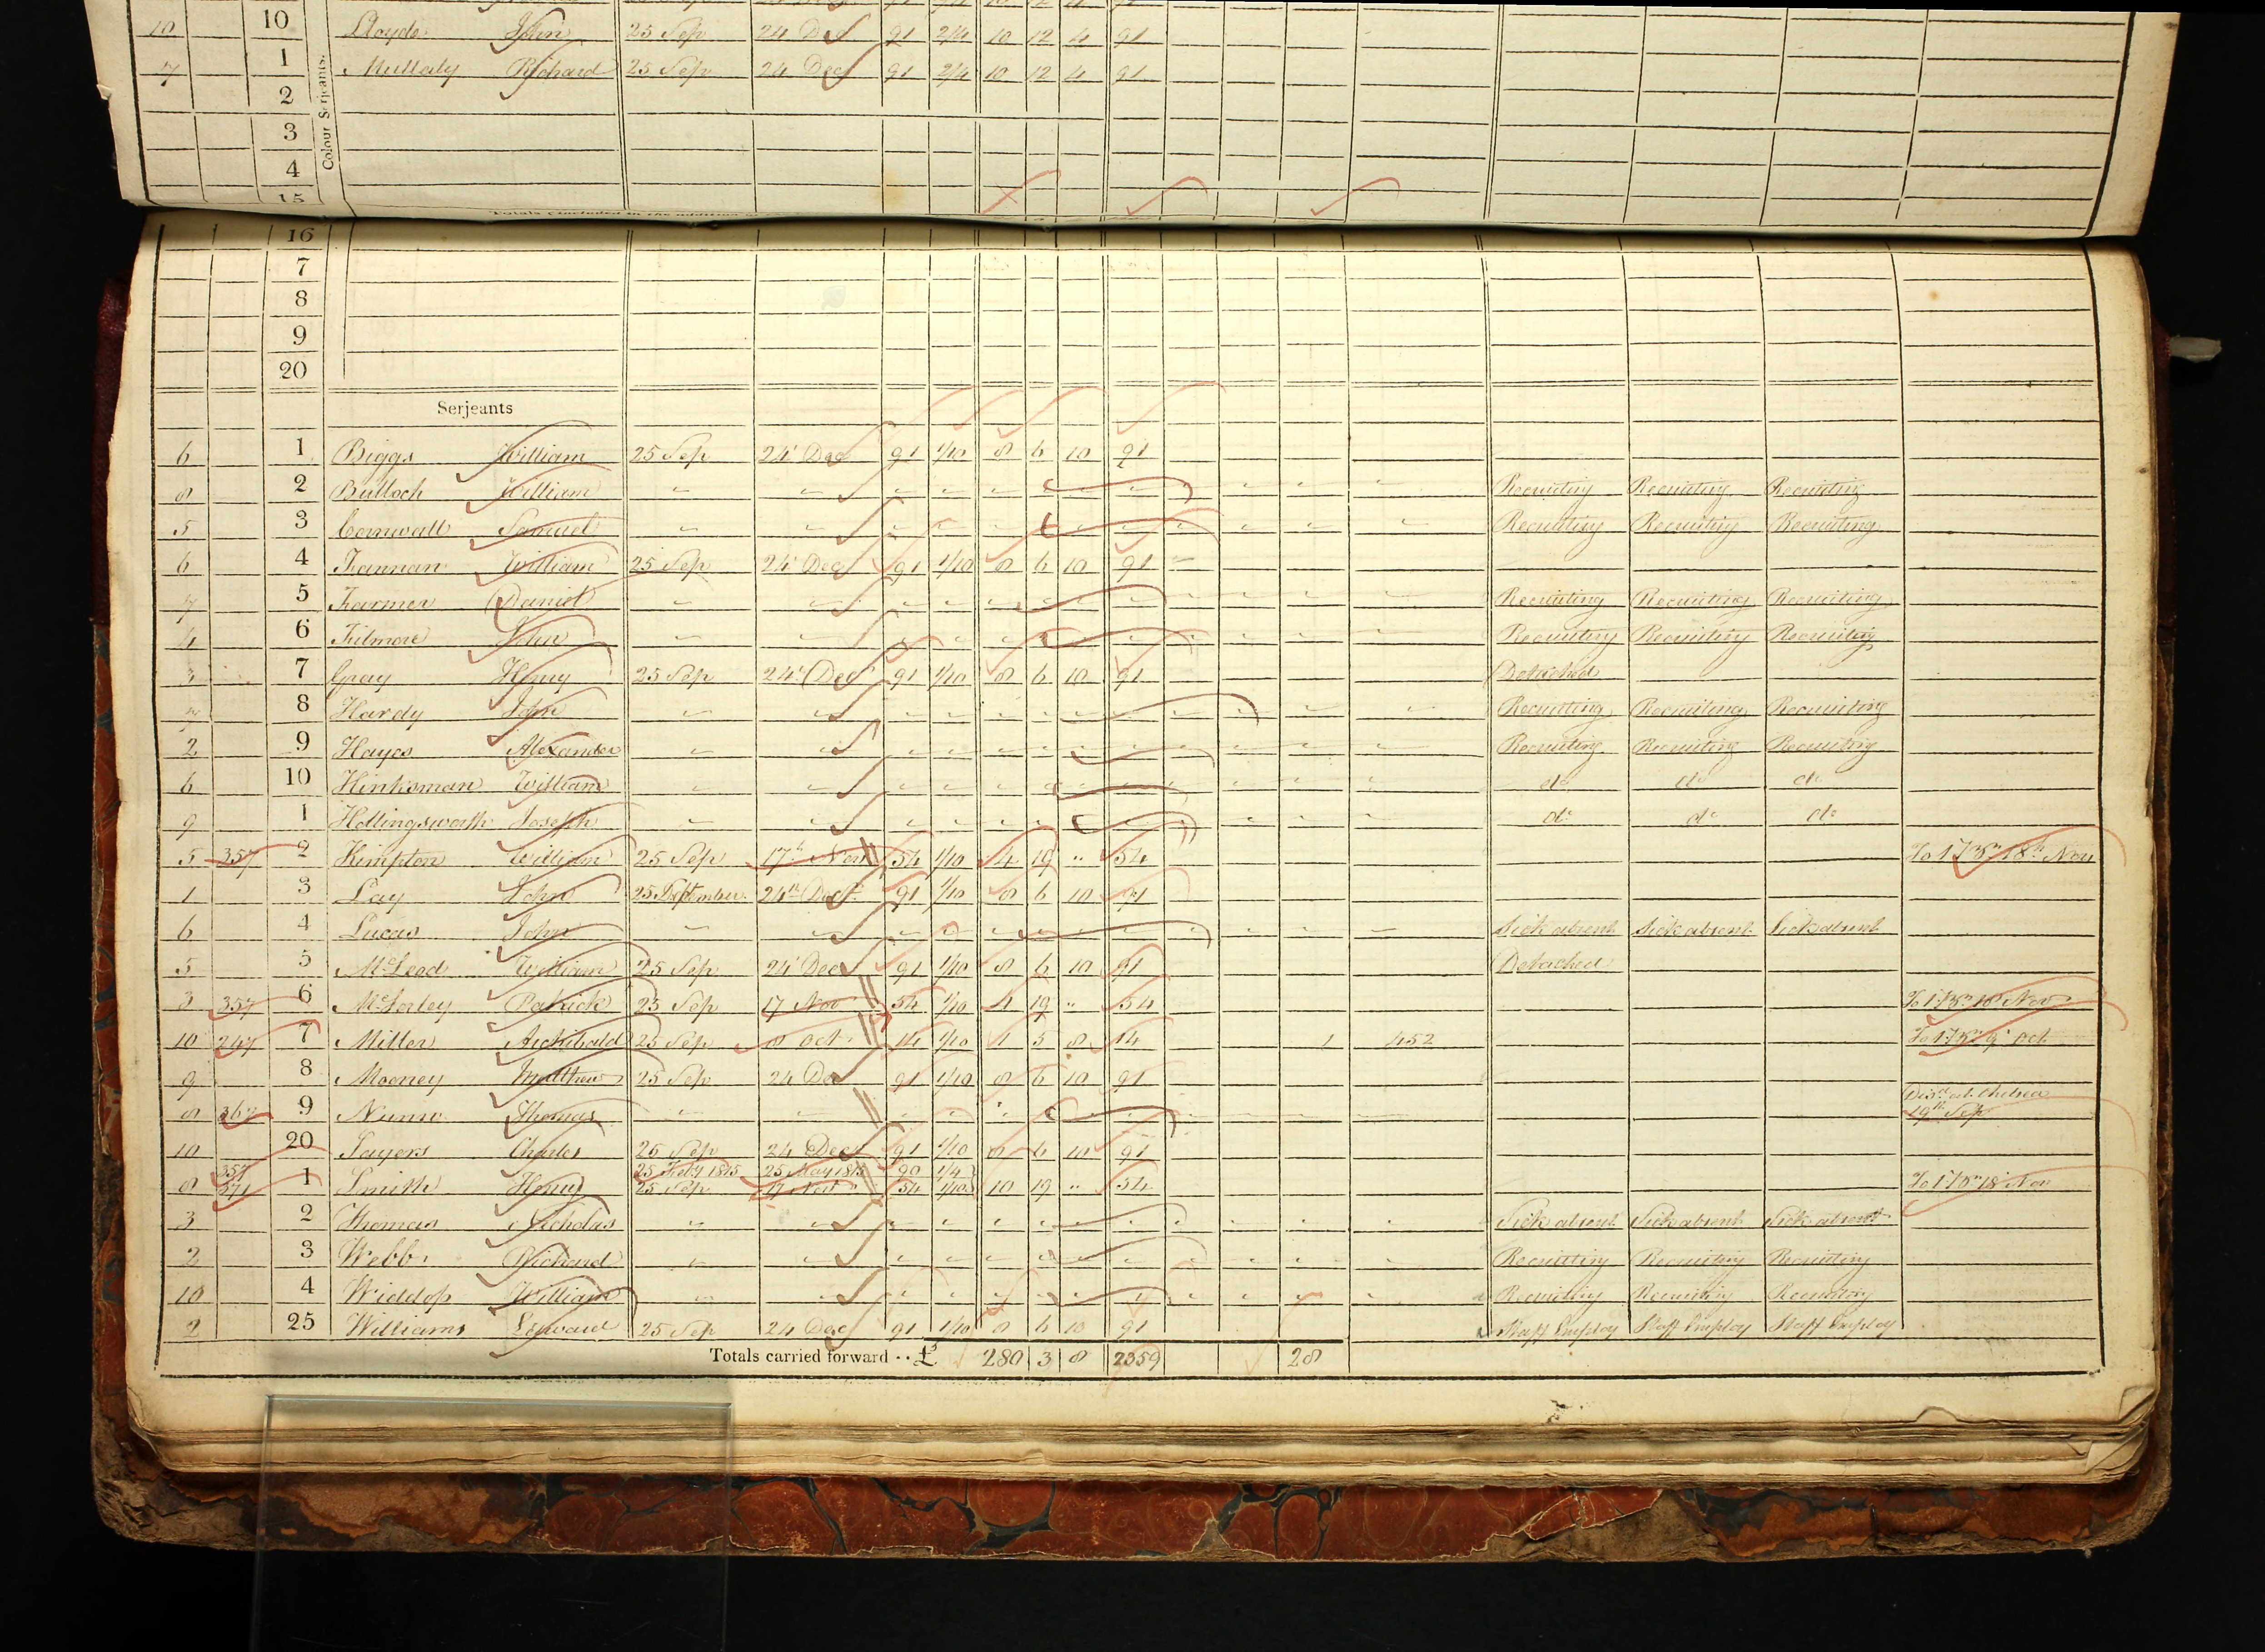 10 10 Lloyde John 25 Sep 24 Dec 91 2/4 10 12 4 91
7 1 Mullaly Richard 25 Sep 24 Dec 91 2/4 10 12 4 91
2
Colour Serjeants.
3
4
15
16
7
8
9
20
Serjeants
6 1 Biggs William 25 Sep 24 Dec 91 1/10 8 6 10 91
8 2 Bulloch William Recruiting Recruiting Recruiting
5 3 Cornwall Samuel Recruiting Recruiting Recruiting
6 4 Fannan William 25 Sep 24 Dec 91 1/10 8 6 10 91
7 5 Farmer Daniel Recruiting Recruiting Recruiting
4 6 Filmore John Recruiting Recruiting Recruiting
3 7 Gray Henry 25 Sep 24 Dec 91 1/10 8 6 10 91 Detached
8 Hardy John Recruiting Recruiting Recruiting
2 9 Hayes Alexander Recruiting Recruiting Recruiting
6 10 Hinksman William do do do
9 1 Hollingsworth Joseph do do do
5 357 2 Kimpton William 25 Sep 17th Nov 54 1/10 4 19 " 54 To 1st 3rd 18th Nov
1 3 Lay John 25 September 24th Dec 91 1/10 8 6 10 91
6 4 Lucas John Sick absent Sick absent Sick absent
5 5 McLeod William 25 Sep 24 Dec 91 1/10 8 6 10 91 Detached
3 357 6 McSorley Patrick 25 Sep 17 Nov 54 1/10 4 19 " 54 18 Nov
10 247 7 Miller Archibald 25 Sep 8 Oct 14 1/10 1 5 8 14 1 452 9 Oct
9 8 Mooney Matthew 25 Sep 24 Dec 91 1/10 8 6 10 91
8 367 9 Nunn Thomas Disd. at Chelsea
19th Sep
10 20 Sayers Charles 25 Sep 24 Dec 91 1/10 8 6 10 91
357 25 Feby 1815 25 May 1815 90 1/4
8 371 1 Smith Henry 25 Sep 17 Nov 54 1/10 10 19 " 54 18 Nov
3 2 Thomas Nicholas Sick absent Sick absent Sick absent
2 3 Webb Richard Recruiting Recruiting Recruiting
10 4 Widdop William Recruiting Recruiting Recruiting
2 25 Williams Edward 25 Sep 24 Dec 91 1/10 8 6 10 91 Staff Employ Staff Employ Staff Employ
Totals carried forward .. £ 280 3 8 2359 28